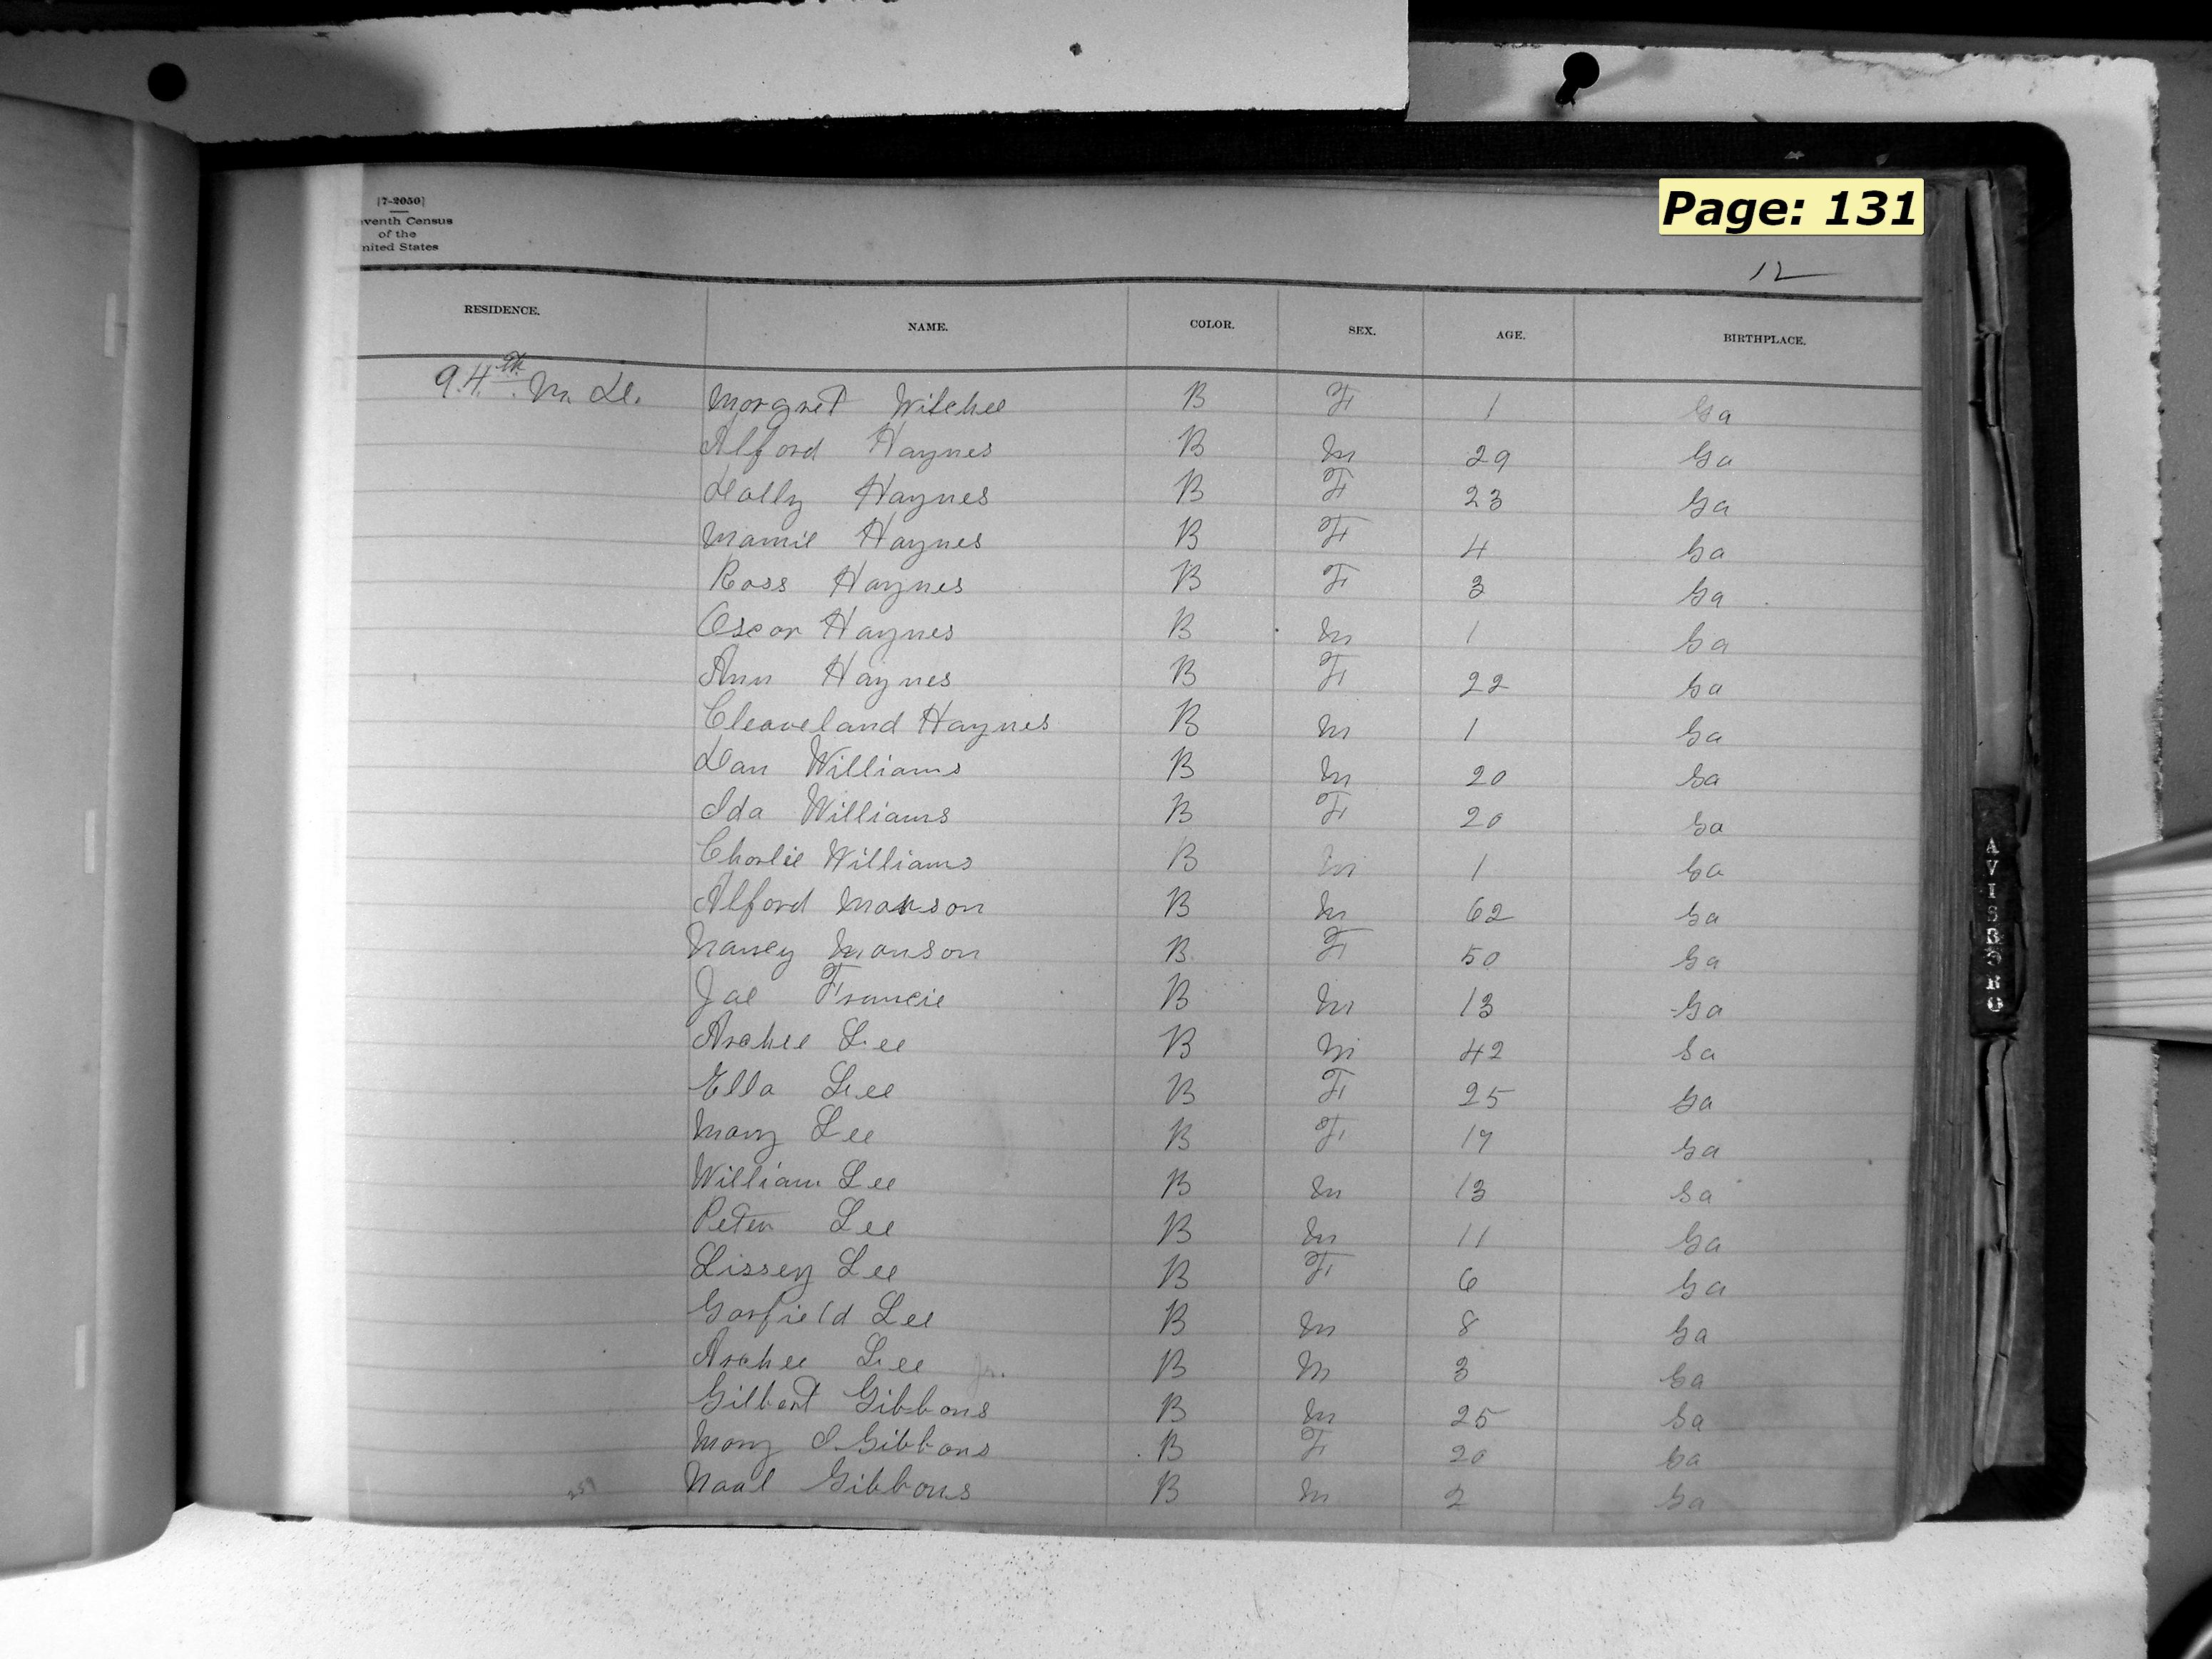 Page: 131
[7-2050]
eventh Census
of the
nited States
12
RESIDENCE. NAME. COLOR. SEX. AGE. BIRTHPLACE.
94th M. D. Morgret Witchee B F 1 Ga
Alford Haynes B M 29 Ga
Dolly Haynes B F 23 Ga
Mamie Haynes B F 4 Ga
Ross Haynes B F 3 Ga
Oscor Haynes B M 1 Ga
Ann Haynes B F 22 Ga
Cleaveland Haynes B M 1 Ga
Dan Williams B M 20 Ga
Ida Williams B F 20 Ga
Chorlie Williams B M 1 Ga
Alford Monson B M 62 Ga
Nancy Monson B F 50 Ga
Joe Francie B M 13 Ga
Archee Lee B M 42 Ga
Ella Lee B F 25 Ga
Mary Lee B F 17 Ga
William Lee B M 13 Ga
Peter Lee B M 11 Ga
Lissey Lee B F 6 Ga
Garfield Lee B M 8 Ga
Archee Lee Jr. B M 3 Ga
Gilbert Gibbons B M 25 Ga
Mary I. Gibbons B F 20 Ga
Noal Gibbons B M 2 Ga